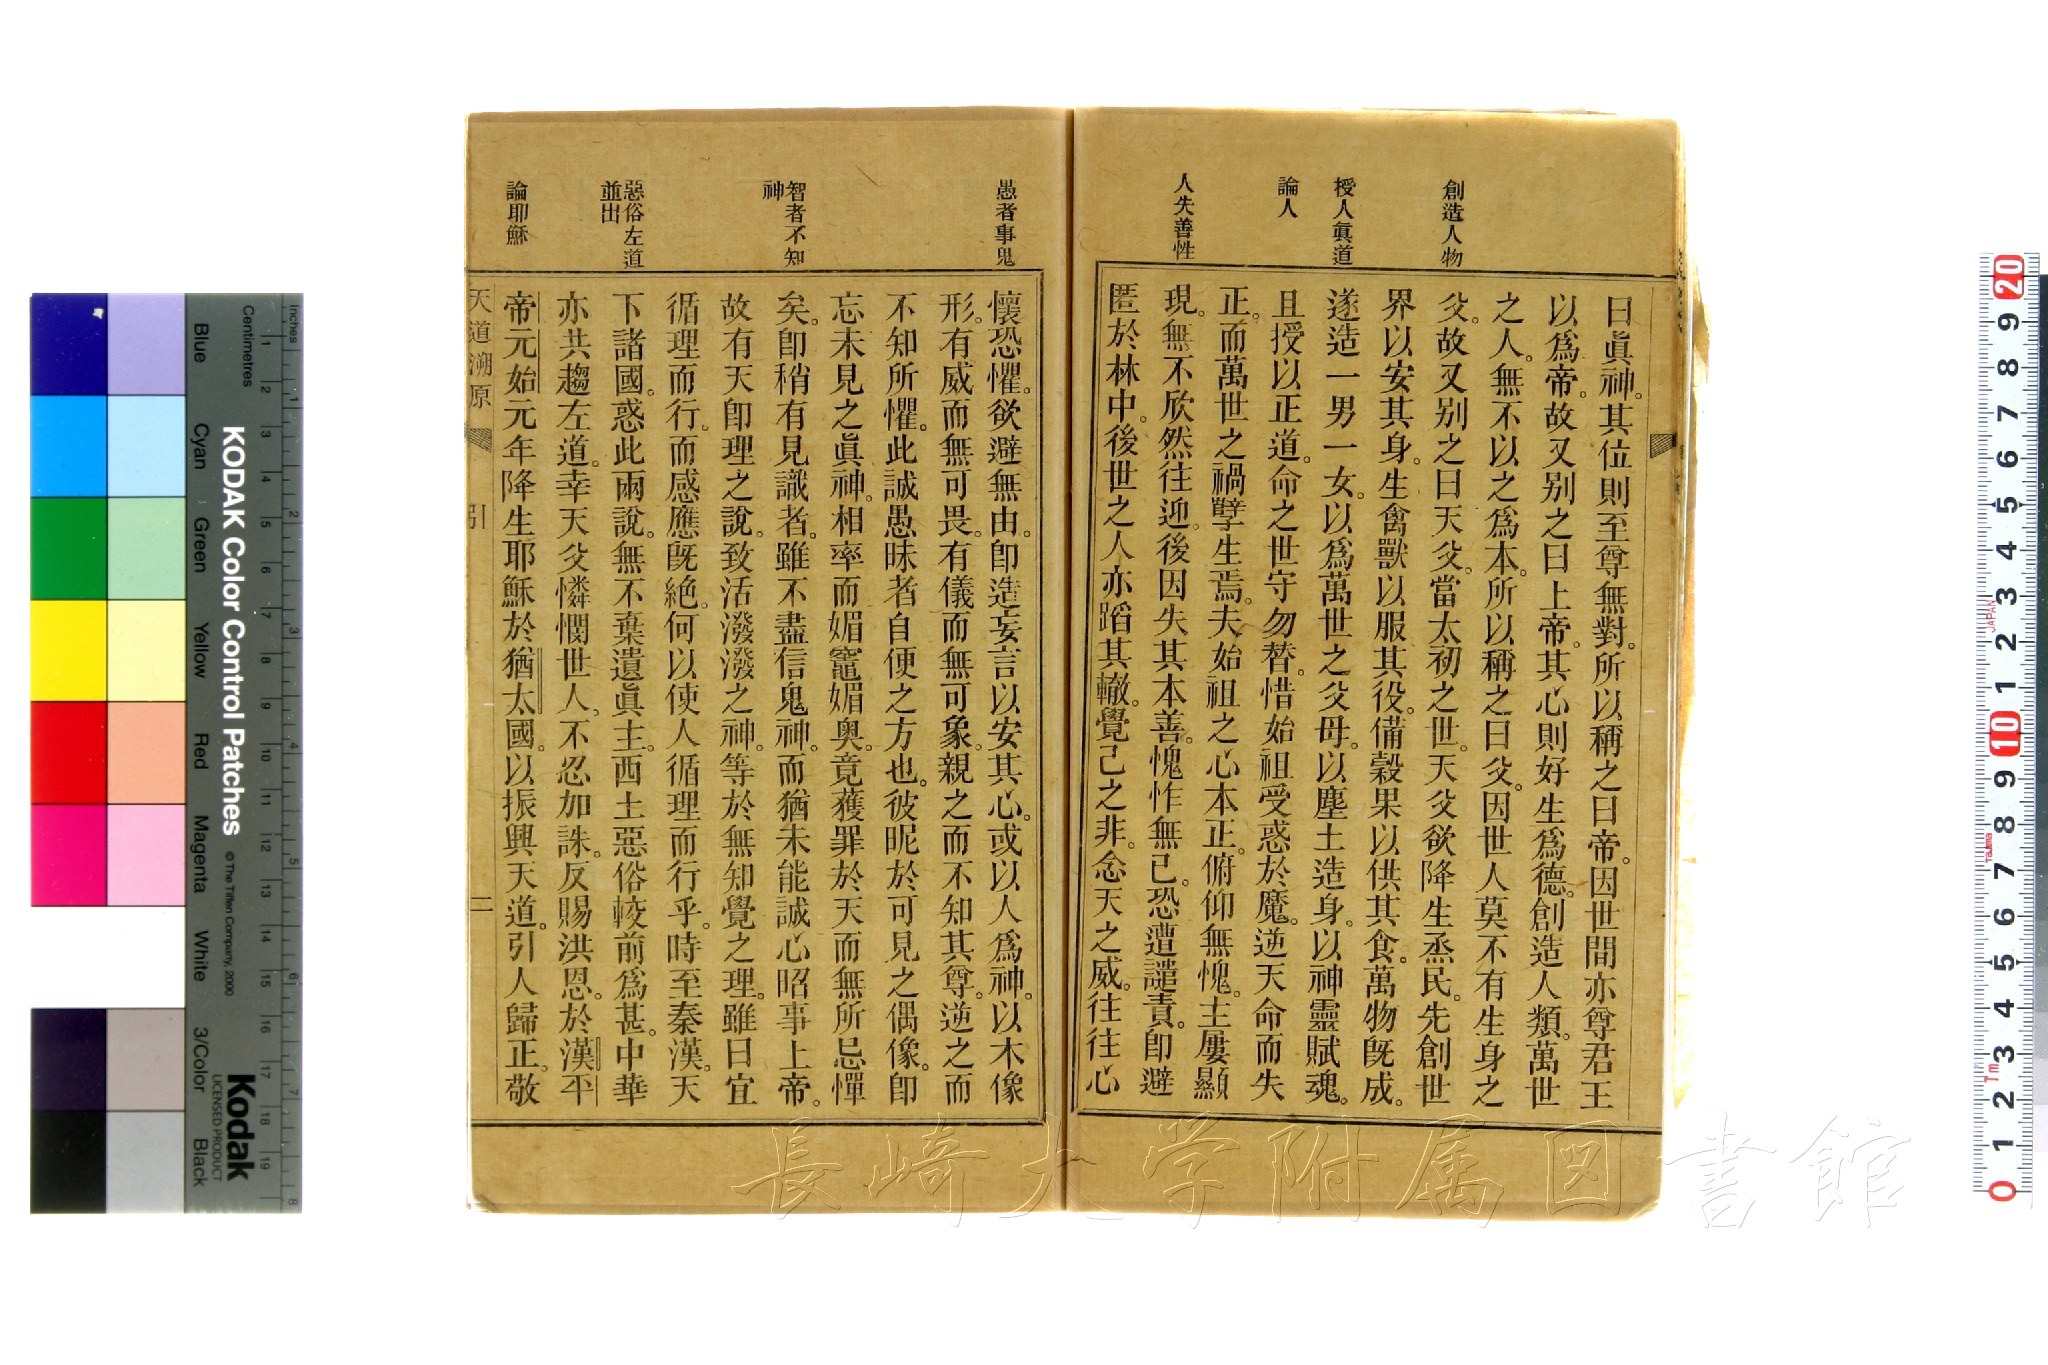 創造人物
授人眞道
論人
人失善性
曰眞神。其位則至尊無對。所以稱之曰帝。因世間亦尊君王
以爲帝。故又別之曰上帝。其心則好生爲德。創造人類。萬世
之人。無不以之爲本。所以稱之曰父。因世人莫不有生身之
父。故又別之曰天父。當太初之世。天父欲降生烝民。先創世
界以安其身。生禽獸以服其役。備穀果以供其食。萬物旣成。
遂造一男一女。以爲萬世之父母。以塵土造身。以神靈賦魂。
且授以正道。命之世守勿替。惜始祖受惑於魔。逆天命而失
正。而萬世之禍孽生焉。夫始祖之心本正。俯仰無愧。主屢顯
現。無不欣然往迎。後因失其本善。愧怍無已。恐遭譴責。卽避
匿於林中。後世之人亦蹈其轍。覺己之非。念天之威。往往心
愚者事鬼
智者不知
神
惡俗左道
並出
論耶穌
懷恐懼。欲避無由。卽造妄言以安其心。或以人爲神。以木像
形。有威而無可畏。有儀而無可象。親之而不知其尊。逆之而
不知所懼。此誠愚昧者自便之方也。彼昵於可見之偶像。卽
忘未見之眞神。相率而媚竈媚奧。竟獲罪於天而無所忌憚
矣。卽稍有見識者。雖不盡信鬼神。而猶未能誠心昭事上帝。
故有天卽理之說。致活潑潑之神。等於無知覺之理。雖曰宜
循理而行。而感應旣絕。何以使人循理而行乎。時至秦漢。天
下諸國。惑此兩說。無不棄遺眞主。西土惡俗較前爲甚。中華
亦共趨左道。幸天父憐憫世人。不忍加誅。反賜洪恩。於漢平
帝元始元年降生耶穌於猶太國。以振興天道。引人歸正。敬
天道溯原
引
二
長崎大学附属図書館
KODAK Color Control Patches
© The Tiffen Company, 2000
Kodak
LICENSED PRODUCT
Inches
Centimetres
Blue
Cyan
Green
Yellow
Red
Magenta
White
3/Color
Black
1 2 3 4 5 6 7 8
1 2 3 4 5 6 7 8 9 10 11 12 13 14 15 16 17 18 19
20 9 8 7 6 5 4 3 2 1 10 9 8 7 6 5 4 3 2 1 0
JAPAN
Tajima